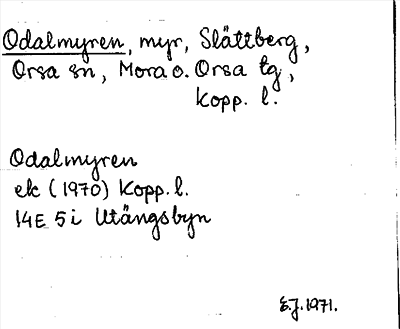 Odalmyren, myr, Slättberg,
Orsa sn, Mora o. Orsa tg,
Kopp. l.
Odalmyren
ek (1970) Kopp. l.
14E 5i Utängsbyn
E.J. 1971.